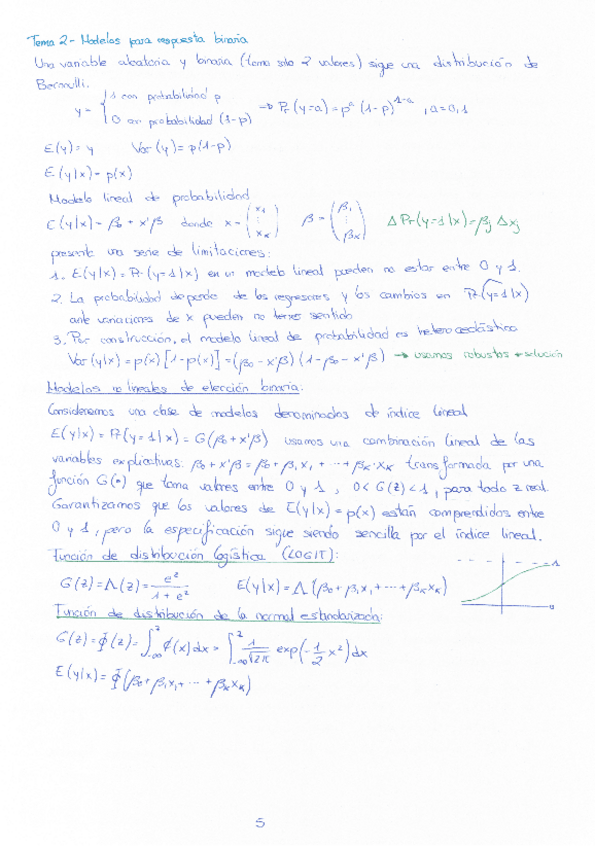 Tema 2 - Modelos para respuesta binaria
Una variable aleatoria y binaria (toma solo 2 valores) sigue una distribución de
Bernoulli.
y = { 1 con probabilidad p
0 con probabilidad (1-p) → Pr(y=a) = pᵃ (1-p)¹⁻ᵃ, a=0,1
E(y) = y Var(y) = p(1-p)
E(y|x) = p(x)
Modelo lineal de probabilidad
E(y|x) = β₀ + x'β donde x = (x₁ ⋮ xₖ) β = (β₁ ⋮ βₖ) ΔPr(y=1|x) = βⱼ Δxⱼ
presenta una serie de limitaciones:
1. E(y|x) = Pr(y=1|x) en un modelo lineal pueden no estar entre 0 y 1.
2. La probabilidad depende de los regresores y los cambios en Pr(y=1|x)
ante variaciones de x pueden no tener sentido
3. Por construcción, el modelo lineal de probabilidad es heterocedástico
Var(y|x) = p(x)[1-p(x)] = (β₀ - x'β)(1-β₀-x'β) → usamos robustos → solución
Modelos no lineales de elección binaria:
Consideremos una clase de modelos denominados de índice lineal
E(y|x) = Pr(y=1|x) = G(β₀+x'β) usamos una combinación lineal de las
variables explicativas: β₀+x'β = β₀+β₁x₁ + ⋯ + βₖ·xₖ transformada por una
función G(•) que toma valores entre 0 y 1, 0<G(z)<1, para todo z real.
Garantizamos que los valores de E(y|x) = p(x) están comprendidos entre
0 y 1, pero la especificación sigue siendo sencilla por el índice lineal.
Función de distribución logística (LOGIT):
G(z) = Λ(z) = eᶻ / (1+eᶻ) E(y|x) = Λ(β₀+β₁x₁+⋯+βₖxₖ)
1
0
Función de distribución de la normal estandarizada:
G(z) = Φ(z) = ∫₋∞ᶻ φ(x)dx = ∫₋∞ᶻ 1/√2π exp(-1/2 x²)dx
E(y|x) = Φ(β₀+β₁x₁+⋯+βₖxₖ)
5